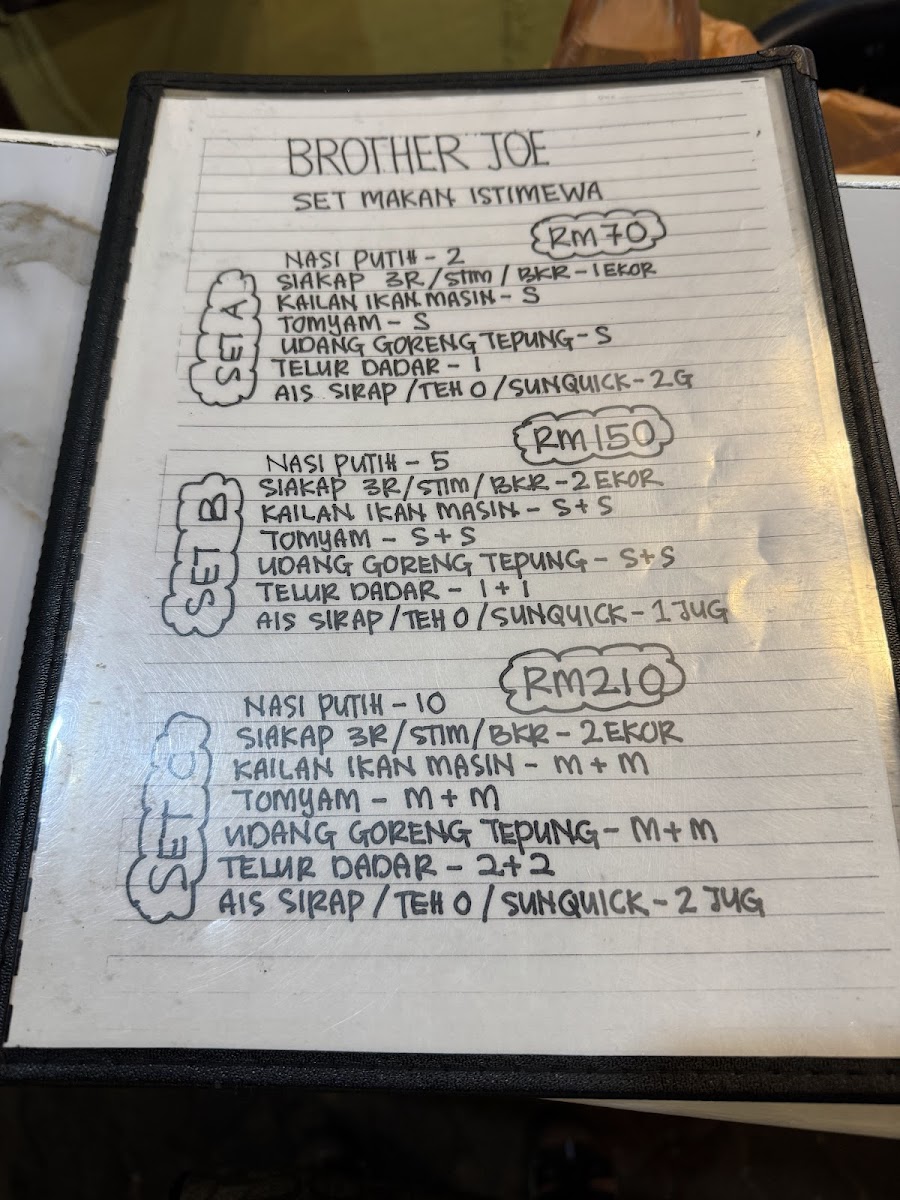 BROTHER JOE
SET MAKAN ISTIMEWA
SET A
RM70
NASI PUTIH - 2
SIAKAP 3R/STIM/BKR - 1 EKOR
KAILAN IKAN MASIN - S
TOMYAM - S
UDANG GORENG TEPUNG - S
TELUR DADAR - 1
AIS SIRAP/TEH O/SUNQUICK - 2G
SET B
RM150
NASI PUTIH - 5
SIAKAP 3R/STIM/BKR - 2 EKOR
KAILAN IKAN MASIN - S+S
TOMYAM - S+S
UDANG GORENG TEPUNG - S+S
TELUR DADAR - 1+1
AIS SIRAP/TEH O/SUNQUICK - 1 JUG
SET C
RM210
NASI PUTIH - 10
SIAKAP 3R/STIM/BKR - 2 EKOR
KAILAN IKAN MASIN - M+M
TOMYAM - M+M
UDANG GORENG TEPUNG - M+M
TELUR DADAR - 2+2
AIS SIRAP/TEH O/SUNQUICK - 2 JUG